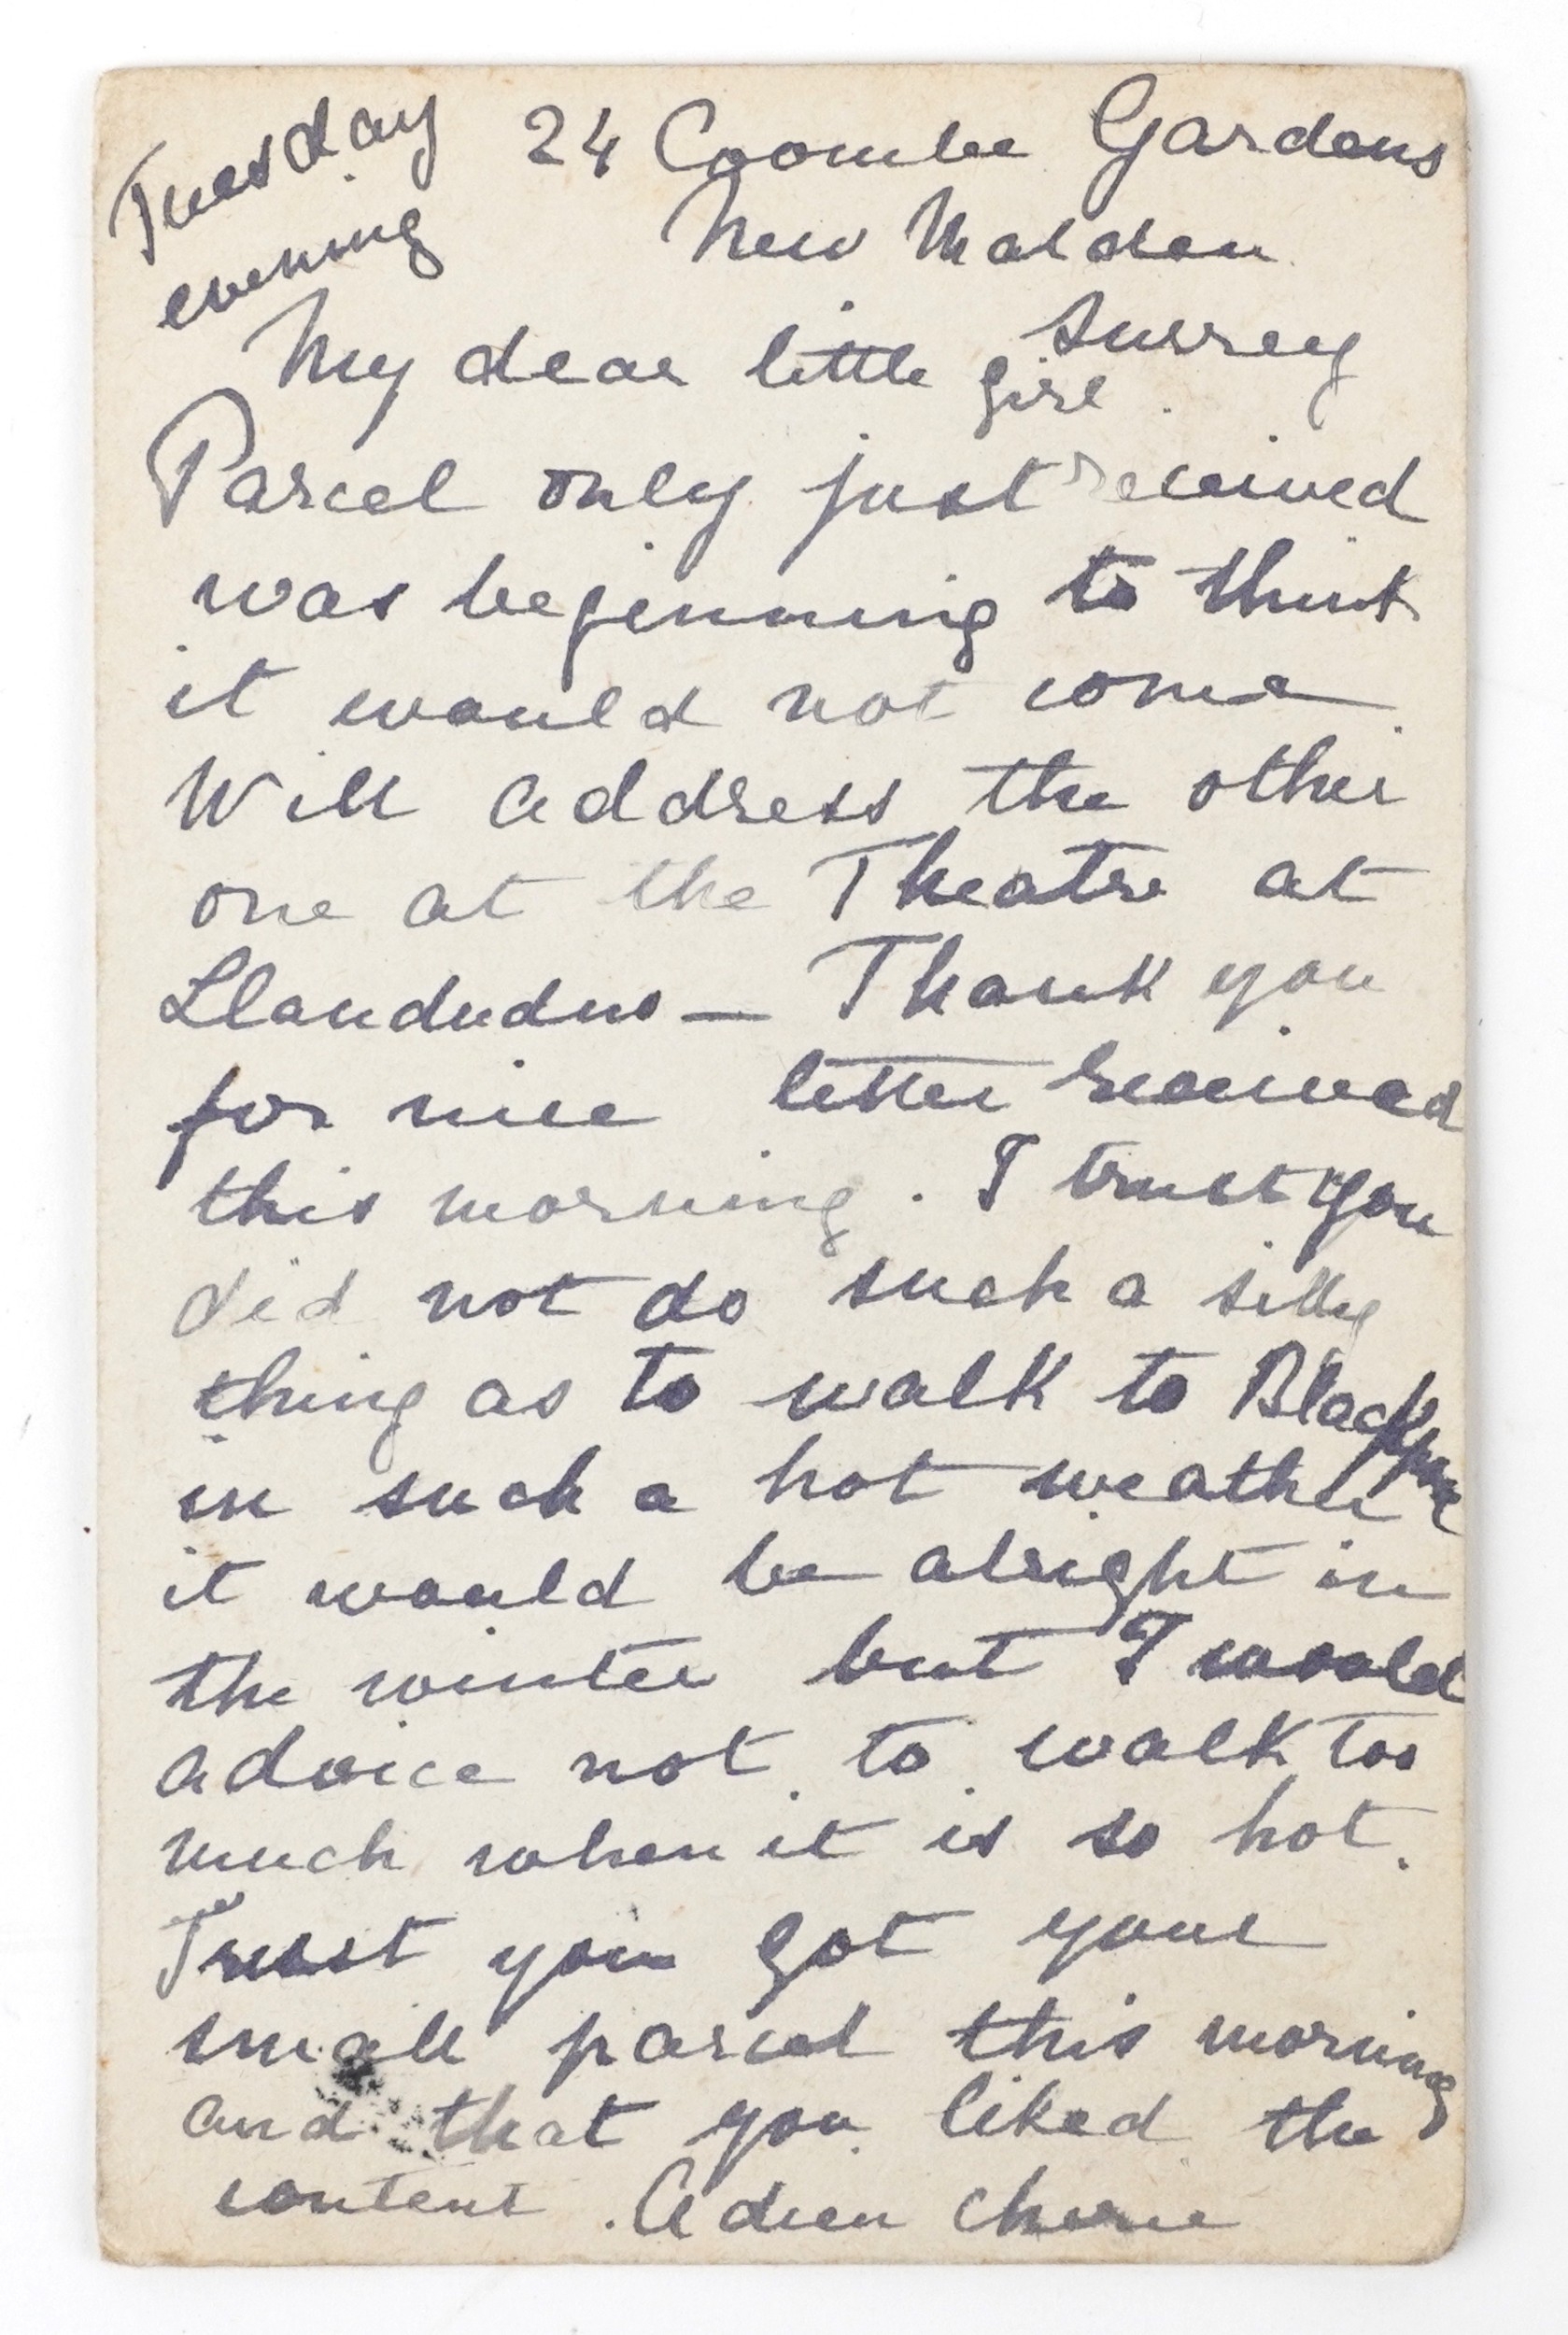 Tuesday
evening
24 Coombe Gardens
New Malden
Surrey
My dear little girl.
Parcel only just received
was beginning to think
it would not come.
Will address the other
one at the Theatre at
Llandudno — Thank you
for nice letter received
this morning. I trust you
did not do such a silly
thing as to walk to Blackpool
in such a hot weather
it would be alright in
the winter but I would
advice not to walk too
much when it is so hot.
Trust you got your
small parcel this morning
and that you liked the
content. Adieu cherie